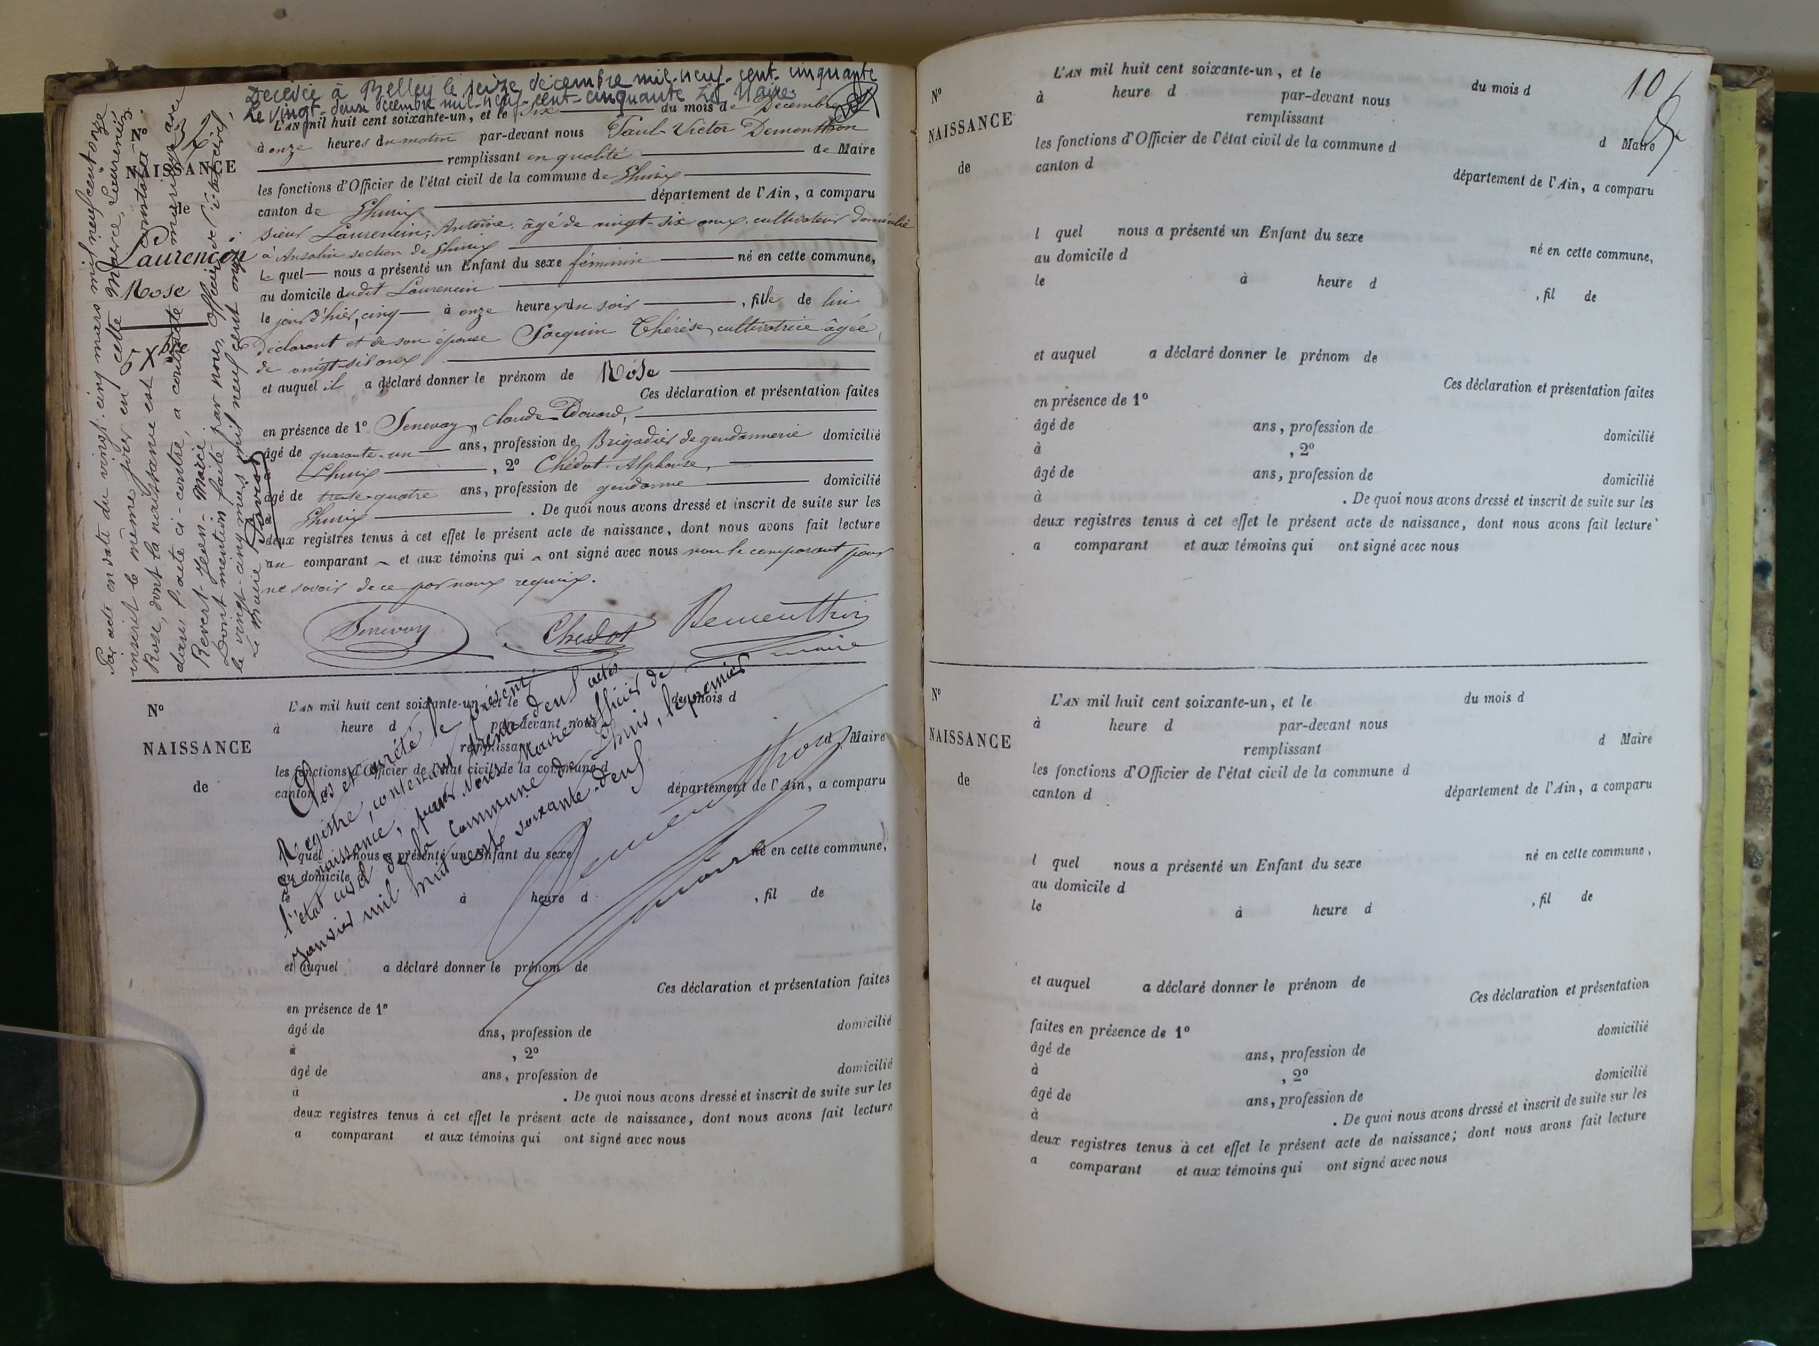 Décédée à Belley le seize décembre mil-neuf-cent-cinquante
Le vingt-deux décembre mil-neuf-cent-cinquante Le Maire
Nº 32
NAISSANCE
de
Laurencin
Rose
5 Xbre
Par acte en date du vingt-cinq mars mil neuf cent onze
inscrit le même jour en cette Mairie Laurencin
Rose, dont la naissance est constatée
dans l'acte ci-contre, a contracté mariage avec
Revert Jean-Marie.
Dont mention faite par nous Officier de l'état civil,
le vingt-cinq mars mil neuf cent onze.
Le Maire
L'AN mil huit cent soixante-un, et le six du mois de Décembre
à onze heures du matin par-devant nous Paul Victor Demonthon
remplissant en qualité de Maire
les fonctions d'Officier de l'état civil de la commune de Lhuis
canton de Lhuis département de l'Ain, a comparu
sieur Laurencin, Antoine âgé de vingt-six ans, cultivateur domicilié
à Ansolin section de Lhuis
le quel nous a présenté un Enfant du sexe féminin né en cette commune,
au domicile dudit Laurencin
le jour d'hier, cinq à onze heures du soir, fille de lui
déclarant et de son épouse Jacquin Thérèse, cultivatrice âgée
de vingt-six ans
et auquel il a déclaré donner le prénom de Rose
Ces déclaration et présentation faites
en présence de 1º Senevay, Claude-Edouard,
âgé de quarante-un ans, profession de Brigadier de gendarmerie domicilié
à Lhuis, 2º Chédot Alphonse,
âgé de trente-quatre ans, profession de gendarme domicilié
à Lhuis. De quoi nous avons dressé et inscrit de suite sur les
deux registres tenus à cet effet le présent acte de naissance, dont nous avons fait lecture
au comparant et aux témoins qui ont signé avec nous non le comparant pour
ne savoir de ce par nous requis.
Senevay Chédot Demonthon
maire
Nº
NAISSANCE
de
L'AN mil huit cent soixante-un, et le du mois d
à heure d par-devant nous
remplissant d Maire
les fonctions d'Officier de l'état civil de la commune d
canton d département de l'Ain, a comparu
l quel nous a présenté un Enfant du sexe né en cette commune,
au domicile d
à heure d , fil de
et auquel a déclaré donner le prénom de
Ces déclaration et présentation faites
en présence de 1º
âgé de ans, profession de domicilié
à , 2º
âgé de ans, profession de domicilié
à . De quoi nous avons dressé et inscrit de suite sur les
deux registres tenus à cet effet le présent acte de naissance, dont nous avons fait lecture
a comparant et aux témoins qui ont signé avec nous
Clos et arrêté le présent
Registre, contenant trente deux actes
de naissance, par nous Maire officier de
l'état civil de la Commune de Lhuis, le premier
Janvier mil huit cent soixante-deux
10
Nº
NAISSANCE
de
L'AN mil huit cent soixante-un, et le du mois d
à heure d par-devant nous
remplissant d Maire
les fonctions d'Officier de l'état civil de la commune d
canton d département de l'Ain, a comparu
l quel nous a présenté un Enfant du sexe né en cette commune,
au domicile d
le à heure d , fil de
et auquel a déclaré donner le prénom de
Ces déclaration et présentation faites
en présence de 1º
âgé de ans, profession de domicilié
à , 2º
âgé de ans, profession de domicilié
à . De quoi nous avons dressé et inscrit de suite sur les
deux registres tenus à cet effet le présent acte de naissance, dont nous avons fait lecture
a comparant et aux témoins qui ont signé avec nous
Nº
NAISSANCE
de
L'AN mil huit cent soixante-un, et le du mois d
à heure d par-devant nous
remplissant d Maire
les fonctions d'Officier de l'état civil de la commune d
canton d département de l'Ain, a comparu
l quel nous a présenté un Enfant du sexe né en cette commune,
au domicile d
le à heure d , fil de
et auquel a déclaré donner le prénom de
Ces déclaration et présentation
faites en présence de 1º domicilié
âgé de ans, profession de
à , 2º domicilié
âgé de ans, profession de
à . De quoi nous avons dressé et inscrit de suite sur les
deux registres tenus à cet effet le présent acte de naissance; dont nous avons fait lecture
a comparant et aux témoins qui ont signé avec nous